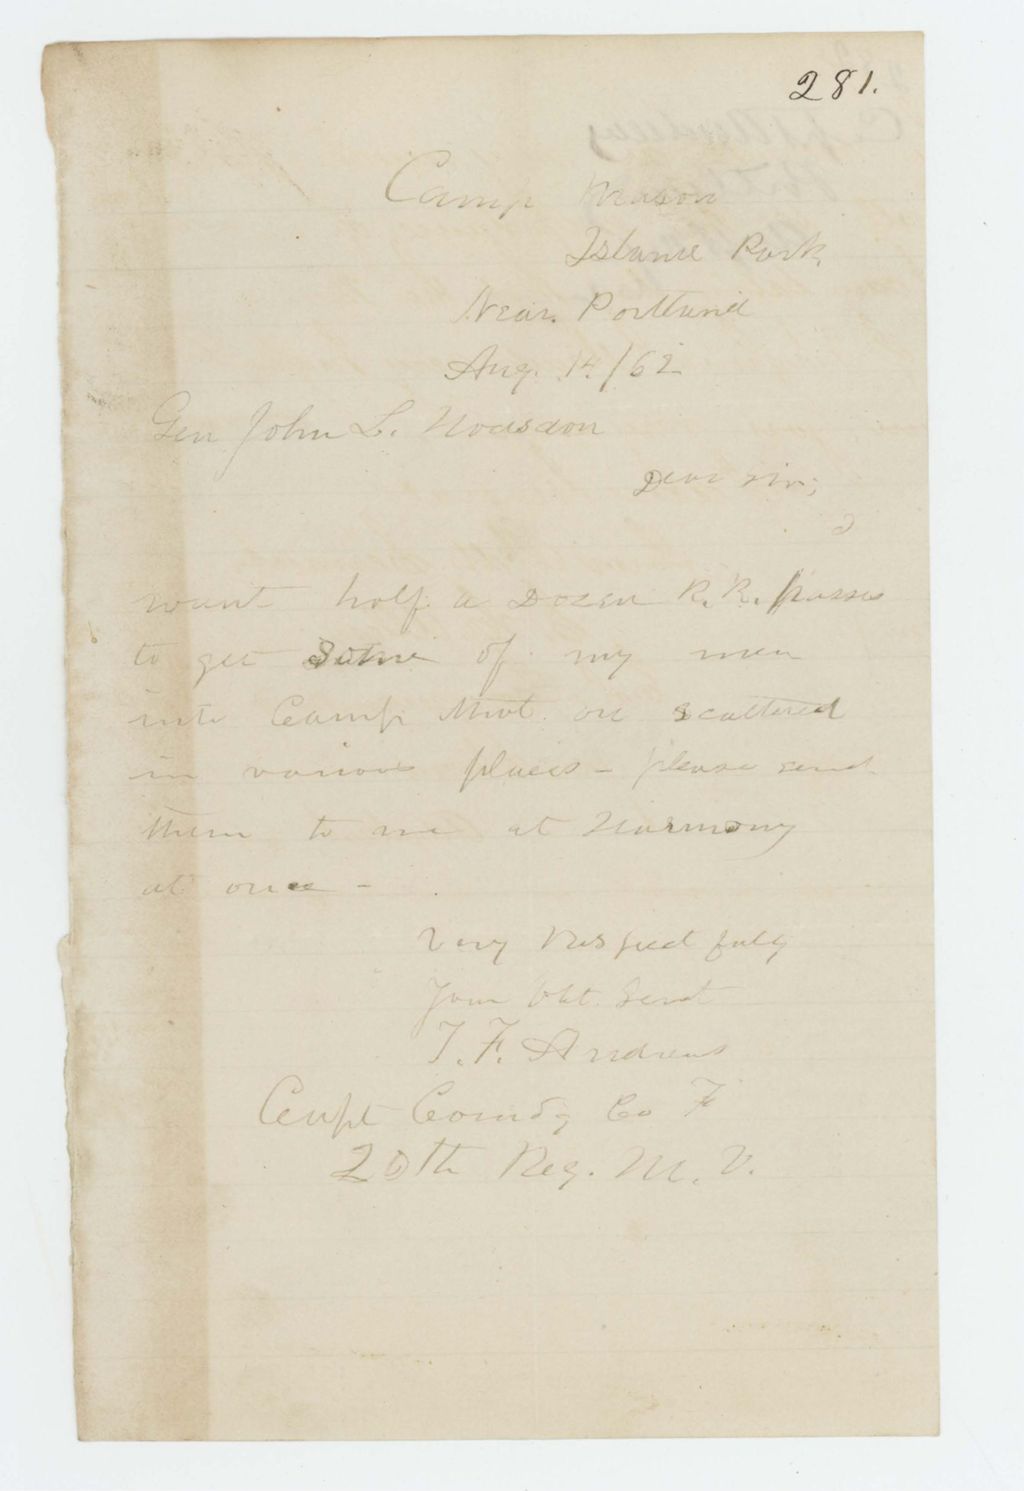 281.
Camp Mason
Island Park,
Near. Portland
Aug. 14/62
Gen John L. Hodsdon
Dear sir;
I
want half a Dozen R. R. passes
to get Some of my men
into Camp that are scattered
in various places - please send
them to me at Harmony
at once -
Very Respectfully
Your Obt. Servt
T. F. Andrews
Capt Comdg Co F
20th Reg. M. V.